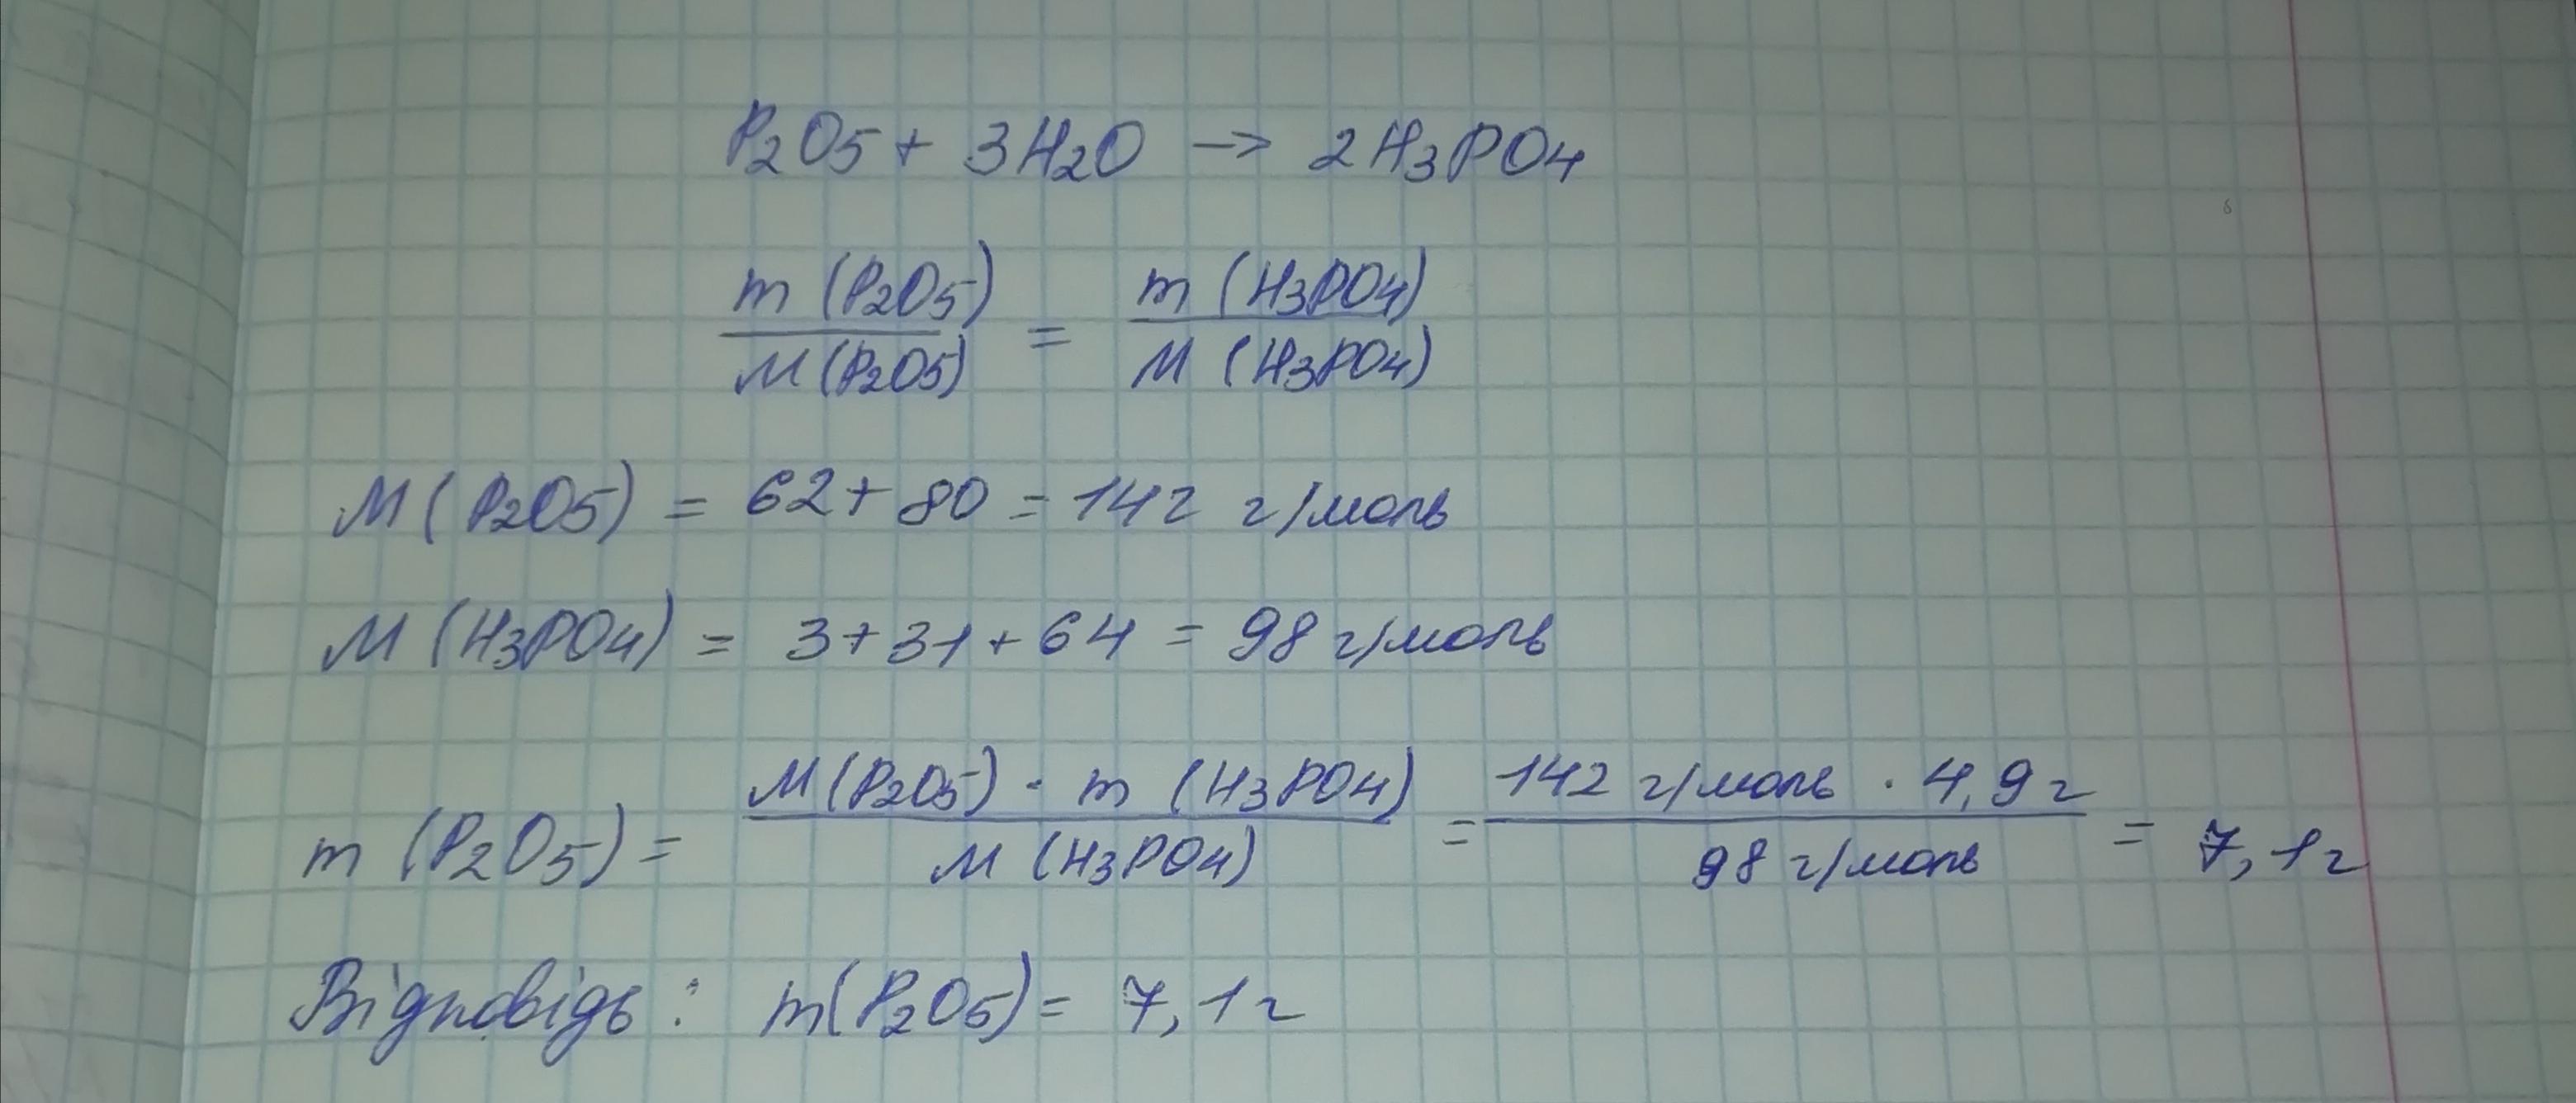 P2O5 + 3H2O → 2H3PO4
m (P2O5) / M (P2O5) = m (H3PO4) / M (H3PO4)
M (P2O5) = 62 + 80 = 142 г/моль
M (H3PO4) = 3 + 31 + 64 = 98 г/моль
m (P2O5) = M (P2O5) · m (H3PO4) / M (H3PO4) = 142 г/моль · 4,9 г / 98 г/моль = 7,1 г
Відповідь: m(P2O5) = 7,1 г